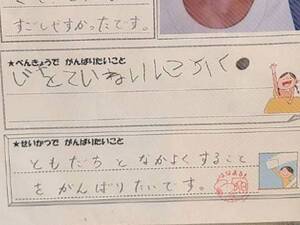 すごしやすかったです。
★べんきょうで がんばりたいこと
じをていねいにかく
★せいかつで がんばりたいこと
ともだちとなかよくすること
をがんばりたいです。